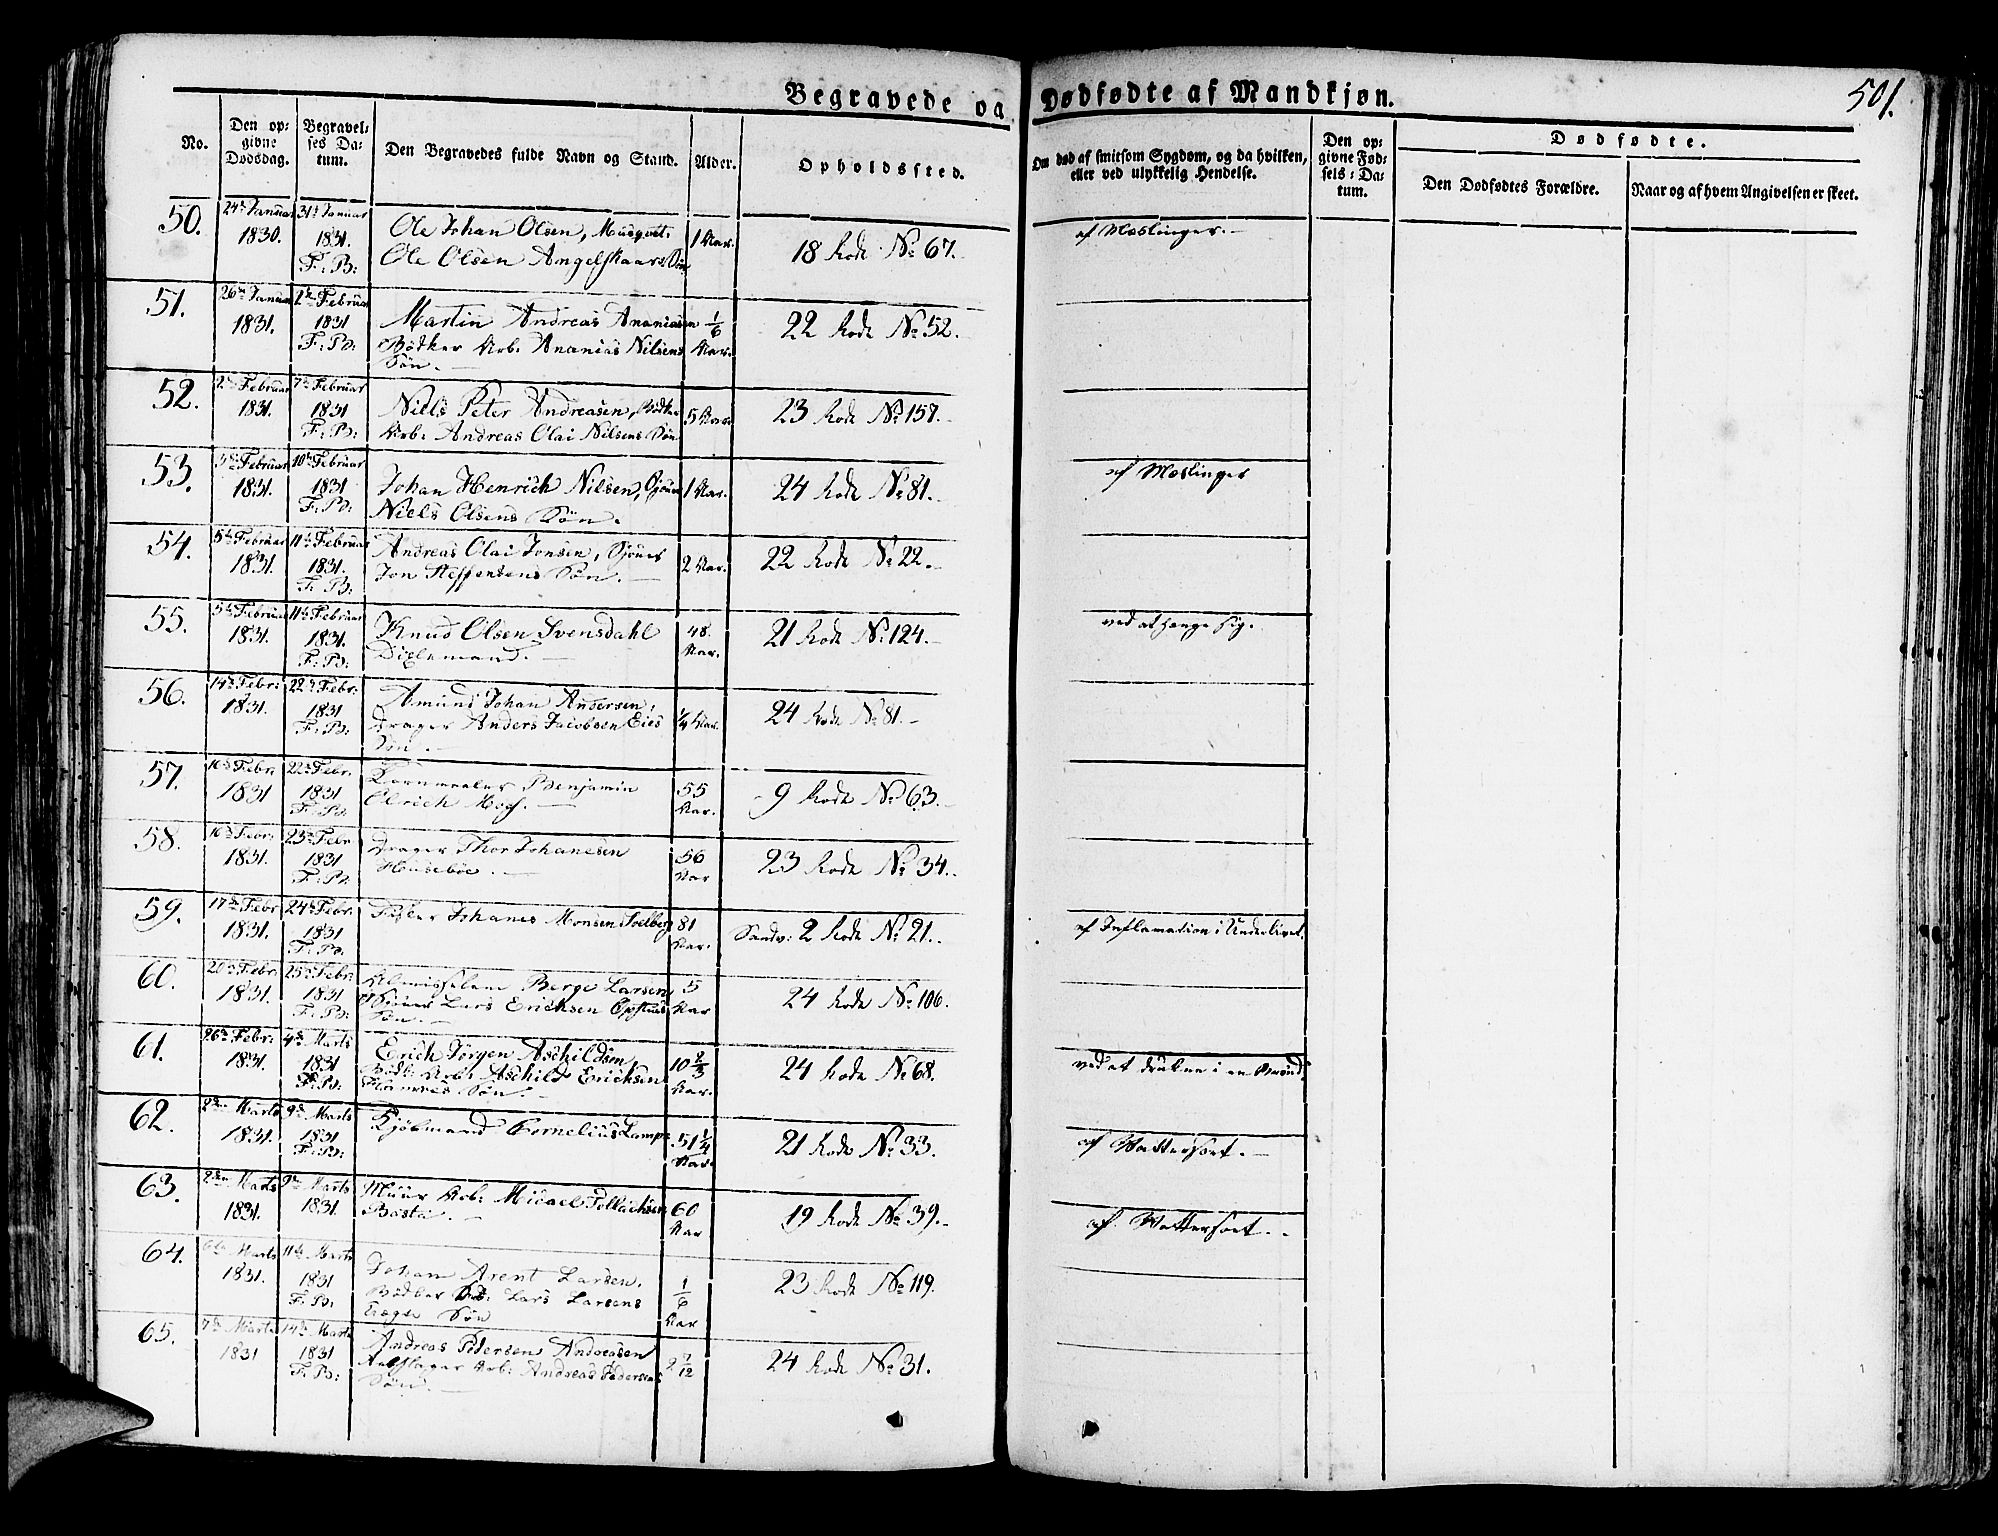 501.
Begravede og Dødfødte af Mandkjøn.
No.
Den op-
givne
Dødsdag.
Begravel-
ses Da-
tum.
Den Begravedes fulde Navn og Stand.
Alder.
Opholdssted.
Om død af smitsom Sygdom, og da hvilken,
eller ved ulykkelig Hendelse.
Den op-
givne Fød-
sels-Da-
tum.
Dødfødte.
Den Dødfødtes Forældre.
Naar og af hvem Angivelsen er skeet.
50. 24de Januar 31te Januar
1830. 1831. F: B:
Ole Johan Olsen, Musqvet:
Ole Olsen Angelskaars Søn
1 Aar. 18 Rode No 67. af Mæslinger.
51. 26de Januar 2de Februar
1831. 1831 F: B:
Martin Andreas Ananiasen
Bødker Arb: Ananias Nilsens
Søn.
1/6 Aar. 22 Rode No 52.
52. 2de Februar 7de Februar
1831. 1831 F: B:
Niels Peter Andreasen, Bødker
Arb: Andreas Olai Nilsens Søn
5 Aar 23 Rode No 157.
53. 3de Februar 10de Februar
1831. 1831 F: B:
Johan Henrich Nilsen,
Niels Olsens Søn.
1 Aar. 24 Rode No 81. af Mæslinger
54. 5te Februar 11te Februar
1831. 1831. F: B:
Andreas Olai Jonsen,
Jon Steffensens Søn.
2 Aar. 22 Rode No 22.
55. 5te Februar 11te Februar
1831. 1831. F: B:
Knud Olsen Svensdahl
48. Aar. 21 Rode No 124. ved at hænge sig.
56. 14de Febr: 22de Febr:
1831. 1831 F: B:
Amund Johan Andersen,
Drager Anders Jacobsen Eies
Søn.
1/4 Aar. 24 Rode No 81.
57. 16de Febr: 22de Febr.
1831 1831 F: B:
Kornmaaler Benjamin
Ulrich
55 Aar. 9 Rode No 63.
58. 16de Febr: 23de Febr
1831. 1831 F: B:
Drager Thor Johanesen
Husebøe.
56 Aar 23 Rode No 34.
59. 17de Febr 24de Febr:
1831. 1831 F: B:
Fisker Johanes Monsen Solberg
81 Aar. Sandv: 2 Rode No 21. af Inflamation i Underlivet.
60. 20de Febr: 25de Febr:
1831. 1831 F: B:
Berge Larsen
Lars Ericksen
Søn.
5 Aar 24 Rode No 106.
61. 26de Febr: 4de Marts
1831. 1831 F: B:
Erich Jørgen Aschildsen
Bødk: Arb: Aschild Ericksen
Søn.
10 2/3 Aar. 24 Rode No 68. ved at drukne i en Brønd.
62. 2den Marts 9de Marts
1831. 1831 F: B:
Kjøbmand Cornelius Lampe
51 1/4 Aar. 21 Rode No 33. af Vattersoet.
63. 2den Marts 9de Marts
1831. 1831.
Muur Arb: Micael
60 Aar 19 Rode No 39. af Vattersoet.
64. 6te Marts 11te Marts
1831. 1831 F: B:
Johan Arent Larsen,
Bødker Arb: Lars Larsens
Søn
1/6 Aar 23 Rode No 119.
65. 7de Marts 14de Marts
1831 1831 F: B:
Andreas Petersen Andreasen
Arb: Andreas Pedersens
Søn.
2 7/12 24 Rode No 31.